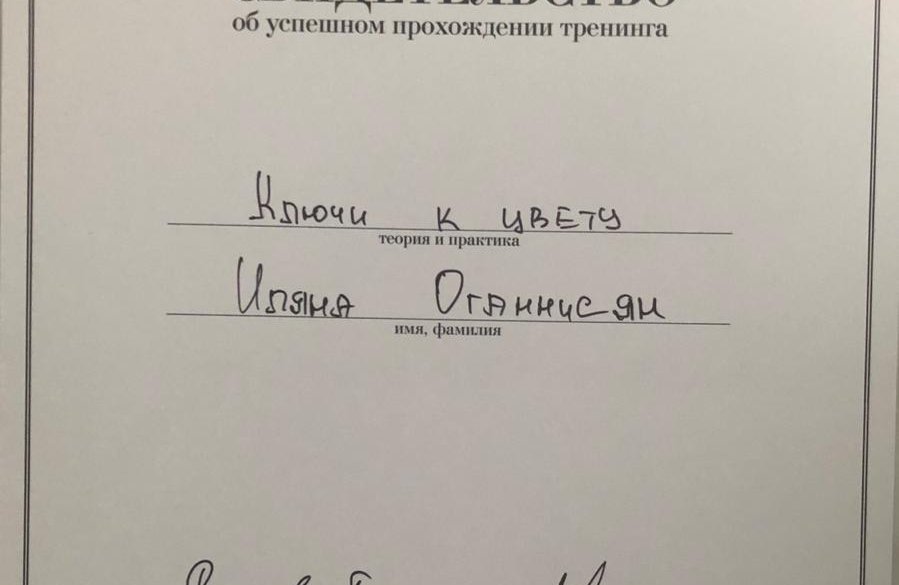 СВИДЕТЕЛЬСТВО
об успешном прохождении тренинга
Ключи к цвету
теория и практика
Иляна Оганнисян
имя, фамилия